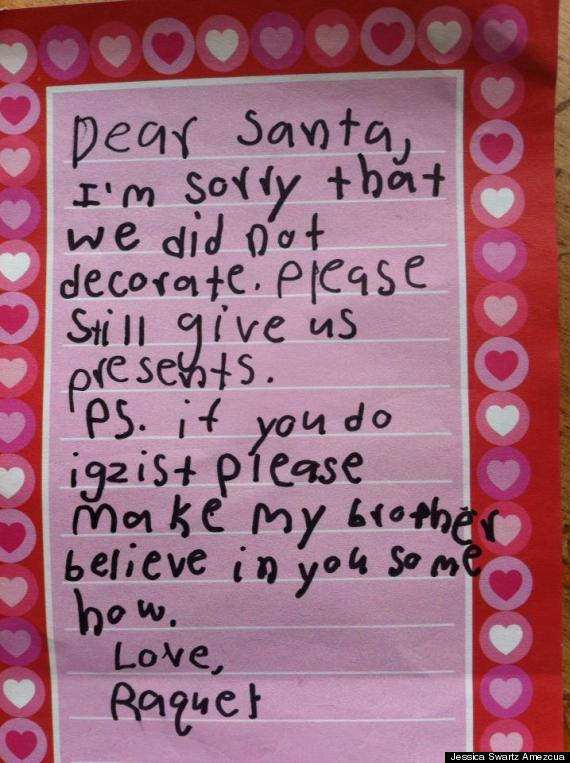 Dear Santa,
I'm sorry that
we did not
decorate. please
Still give us
presents.
PS. if you do
igzist please
make my brother
believe in you some
how.
Love,
Raquel
Jessica Swartz Amezcua